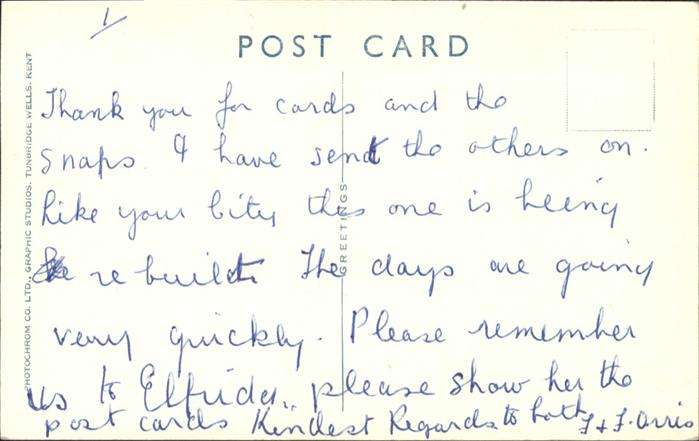 1
POST CARD
PHOTOCHROM CO. LTD., GRAPHIC STUDIOS, TUNBRIDGE WELLS, KENT
GREETINGS
Thank you for cards and the
snaps. I have sent the others on.
Like your City this one is being
re built. The days are going
very quickly. Please remember
us to Elfrida., please show her the
post cards Kindest Regards to both
F + F. Orris